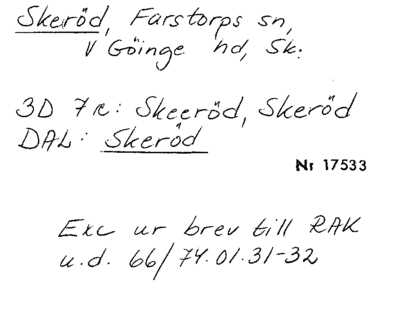 Skeröd, Farstorps sn,
V Göinge hd, Sk:
3D 7c: Skeeröd, Skeröd
DAL: Skeröd
Nr 17533
Exc ur brev till RAK
u.d. 66/74.01.31-32